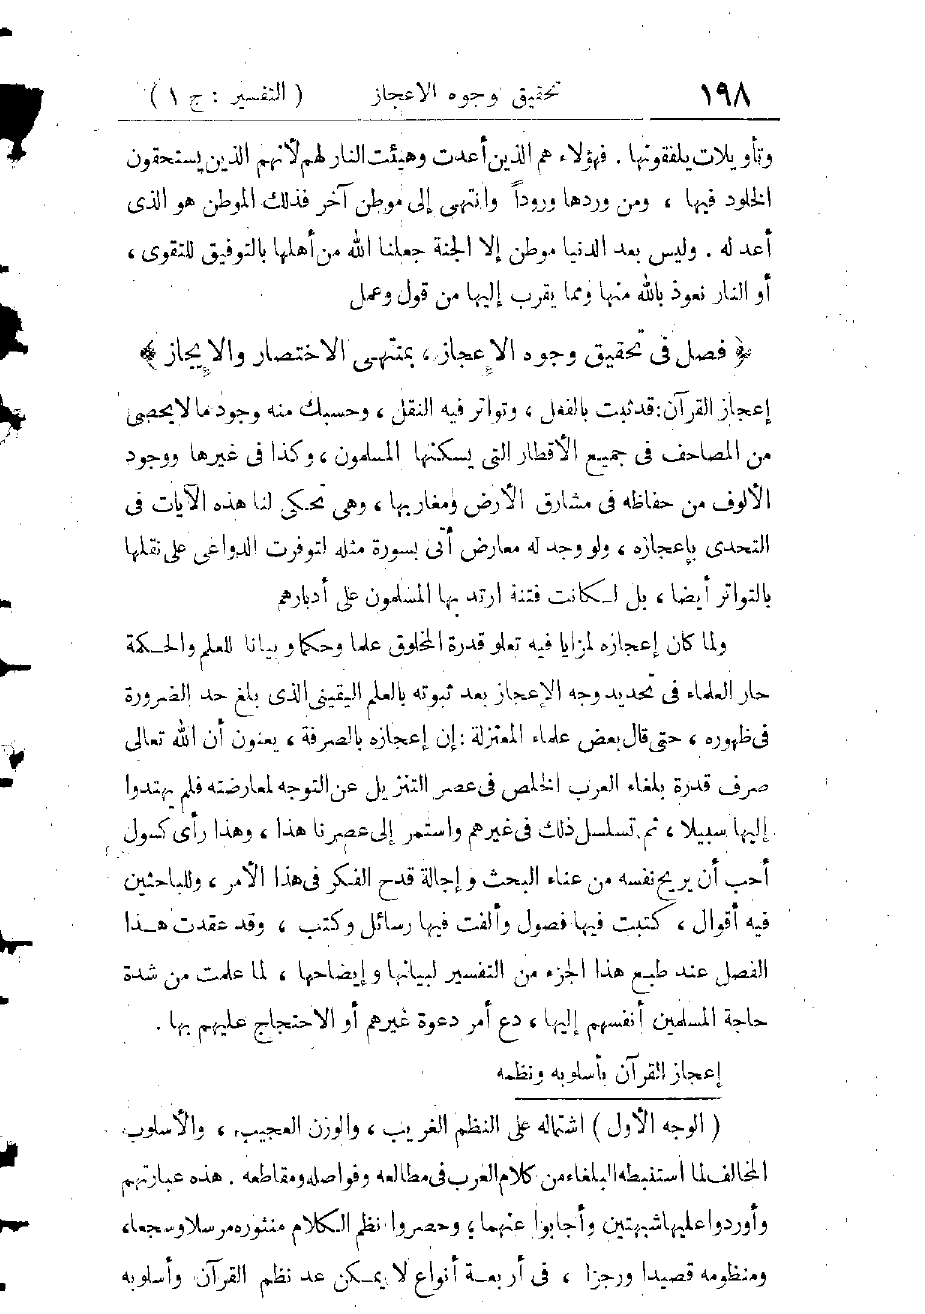 ١٩٨ تحقيق وجوه الاعجاز ( التفسير : ج ١ )
وتأويلات يلفقونها . فهؤلاء هم الذين أعدت وهيئت النار لهم لأنهم الذين يستحقون
الخلود فيها ، ومن وردها وروداً وانتهى إلى موطن آخر فذلك الموطن هو الذى
أعد له . وليس بعد الدنيا موطن إلا الجنة جعلنا الله من أهلها بالتوفيق للتقوى ،
أو النار نعوذ بالله منها ومما يقرب إليها من قول وعمل
﴿ فصل فى تحقيق وجوه الإعجاز ، بمنتهى الاختصار والإيجاز ﴾
إعجاز القرآن: قد ثبت بالفعل ، وتواتر فيه النقل ، وحسبك منه وجود ما لا يحصى
من المصاحف فى جميع الأقطار التى يسكنها المسلمون ، وكذا فى غيرها ووجود
الألوف من حفاظه فى مشارق الأرض ومغاربها ، وهى تحكى لنا هذه الآيات فى
التحدى بإعجازه ، ولو وجد له معارض أتى بسورة مثله لتوفرت الدواعى على نقلها
بالتواتر أيضا ، بل لكانت فتنة ارتد بها المسلمون على أدبارهم
ولما كان إعجازه لمزايا فيه تعلو قدرة المخلوق علما وحكما وبيانا للعلم والحكمة
حار العلماء فى تحديد وجه الإعجاز بعد ثبوته بالعلم اليقينى الذى بلغ حد الضرورة
فى ظهوره ، حتى قال بعض علماء المعتزلة : إن إعجازه بالصرفة ، يعنون أن الله تعالى
صرف قدرة بلغاء العرب الخلص فى عصر التنزيل عن التوجه لمعارضته فلم يهتدوا
إليها سبيلا ، ثم تسلسل ذلك فى غيرهم واستمر إلى عصرنا هذا ، وهذا رأى كسول
أحب أن يريح نفسه من عناء البحث وإجالة قدح الفكر فى هذا الأمر ، وللباحثين
فيه أقوال ، كتبت فيها فصول وألفت فيها رسائل وكتب ، وقد عقدت هذا
الفصل عند طبع هذا الجزء من التفسير لبيانها وإيضاحها ، لما علمت من شدة
حاجة المسلمين أنفسهم إليها ، دع أمر دعوة غيرهم أو الاحتجاج عليهم بها .
إعجاز القرآن بأسلوبه ونظمه
( الوجه الأول ) اشتماله على النظم الغريب ، والوزن العجيب ، والأسلوب
المخالف لما استنبطه البلغاء من كلام العرب فى مطالعه وفواصله ومقاطعه . هذه عبارتهم
وأوردوا عليها شبهتين وأجابوا عنهما ؛ وحصروا نظم الكلام منثوره مرسلا وسجعا ،
ومنظومه قصيدا ورجزا ، فى أربعة أنواع لا يمكن عد نظم القرآن وأسلوبه